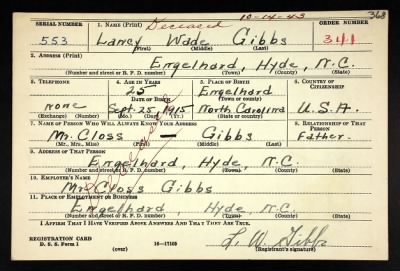 10-14-43
368
SERIAL NUMBER 1. NAME (Print) Deceased ORDER NUMBER
553 Laney Wade Gibbs 311
(First) (Middle) (Last)
2. ADDRESS (Print)
Engelhard, Hyde, N.C.
(Number and street or R. F. D. number) (Town) (County) (State)
3. TELEPHONE 4. AGE IN YEARS 5. PLACE OF BIRTH 6. COUNTRY OF CITIZENSHIP
25 Engelhard
DATE OF BIRTH (Town or county)
None Sept. 25, 1915 North Carolina U.S.A.
(Exchange) (Number) (Mo.) (Day) (Yr.) (State or country)
7. NAME OF PERSON WHO WILL ALWAYS KNOW YOUR ADDRESS 8. RELATIONSHIP OF THAT PERSON
Mr. Closs — Gibbs Father.
(Mr., Mrs., Miss) (First) (Middle) (Last)
9. ADDRESS OF THAT PERSON
Engelhard, Hyde, N.C.
(Number and street or R. F. D. number) (Town) (County) (State)
10. EMPLOYER'S NAME
Mr. Closs Gibbs
11. PLACE OF EMPLOYMENT OR BUSINESS
Engelhard, Hyde, N.C.
(Number and street or R. F. D. number) (Town) (County) (State)
I AFFIRM THAT I HAVE VERIFIED ABOVE ANSWERS AND THAT THEY ARE TRUE.
REGISTRATION CARD
D. S. S. Form 1 16—17105 L. W. Gibbs
(over) (Registrant's signature)